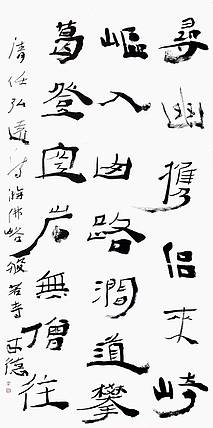 尋幽攜侶來崎
嶇入曲路澗道攀
葛登空岸無僧住
清任弘遠詩游佛峪般若寺